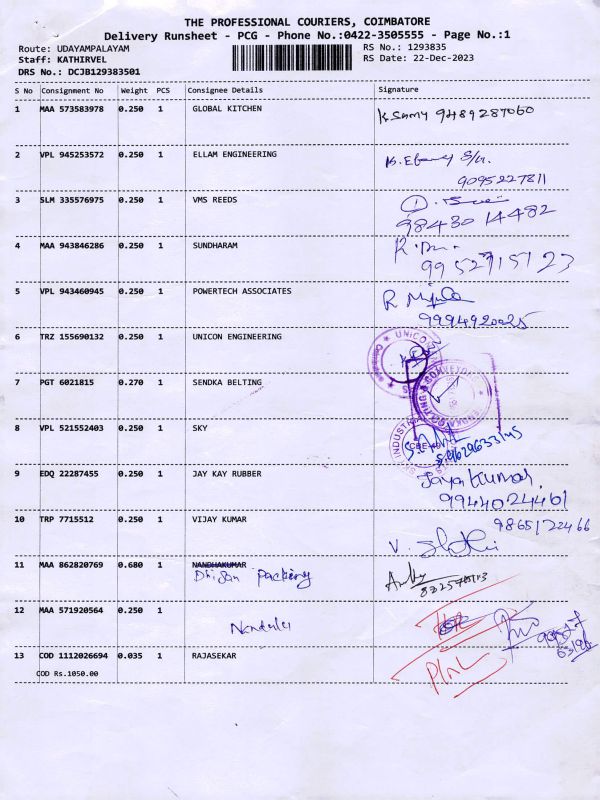 THE PROFESSIONAL COURIERS, COIMBATORE
Delivery Runsheet - PCG - Phone No.:0422-3505555 - Page No.:1
Route: UDAYAMPALAYAM RS No.: 1293835
Staff: KATHIRVEL RS Date: 22-Dec-2023
DRS No.: DCJB129383501
S No Consignment No Weight PCS Consignee Details Signature
1 MAA 573583978 0.250 1 GLOBAL KITCHEN K. Samy 9489287060
2 VPL 945253572 0.250 1 ELLAM ENGINEERING
9095227811
3 SLM 335576975 0.250 1 VMS REEDS
98430 14482
4 MAA 943846286 0.250 1 SUNDHARAM
9952715123
5 VPL 943460945 0.250 1 POWERTECH ASSOCIATES R
9994920025
6 TRZ 155690132 0.250 1 UNICON ENGINEERING
7 PGT 6021815 0.270 1 SENDKA BELTING
8 VPL 521552403 0.250 1 SKY
9 EDQ 22287455 0.250 1 JAY KAY RUBBER Jaya Kumar
9944024461
10 TRP 7715512 0.250 1 VIJAY KUMAR 9865122466
V.
11 MAA 862820769 0.680 1 NANDHAKUMAR
Packing
12 MAA 571920564 0.250 1
13 COD 1112026694 0.035 1 RAJASEKAR
COD Rs.1050.00